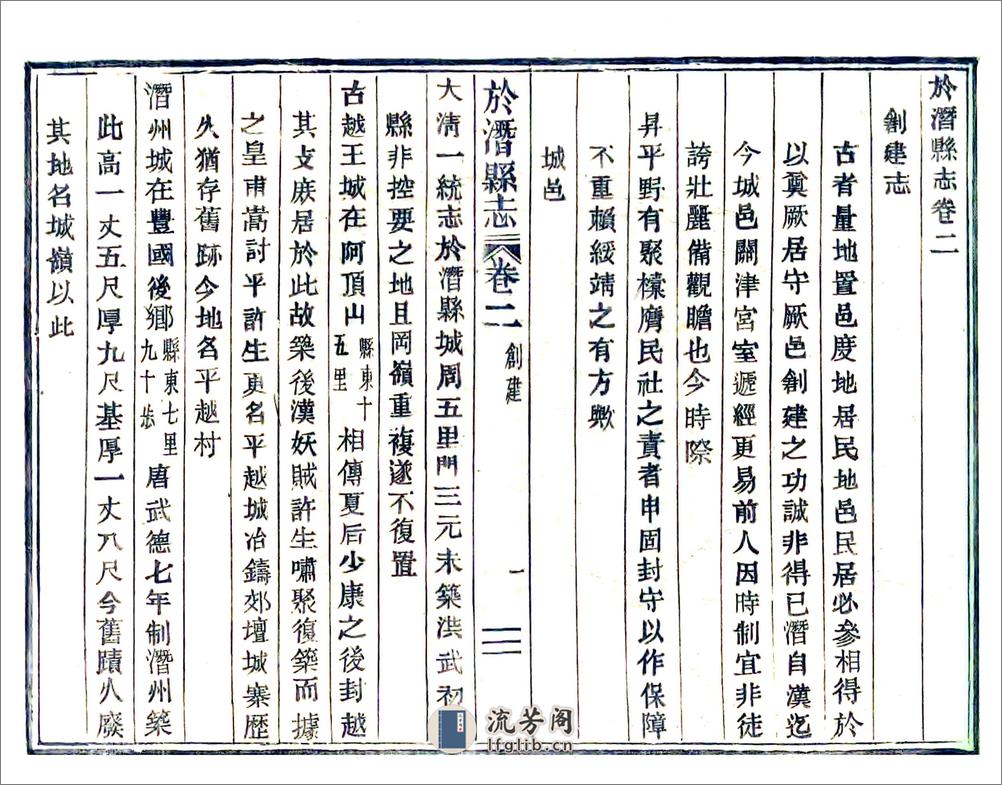 於潛縣志卷二
創建志
古者量地置邑度地居民地邑民居必參相得於
以奠厥居守厥邑創建之功誠非得已潛自漢迄
今城邑關津宮室遞經更易前人因時制宜非徒
誇壯麗備觀瞻也今時際
昇平野有聚檬膺民社之責者申固封守以作保障
不重賴綏靖之有方歟
城邑
於潛縣志 卷二 創建 一
大清一統志於潛縣城周五里門三元未築洪武初
縣非控要之地且岡嶺重複遂不復置
古越王城在阿頂山縣東十五里相傳夏后少康之後封越
其支庶居於此故築後漢妖賊許生嘯聚復築而據
之皇甫嵩討平許生更名平越城冶鑄郊壇城寨歷
久猶存舊跡今地名平越村
潛州城在豐國後鄉縣東七里九十步唐武德七年制潛州築
此高一丈五尺厚九尺基厚一丈八尺今舊蹟久廢
其地名城嶺以此
流芳阁
lfglib.cn